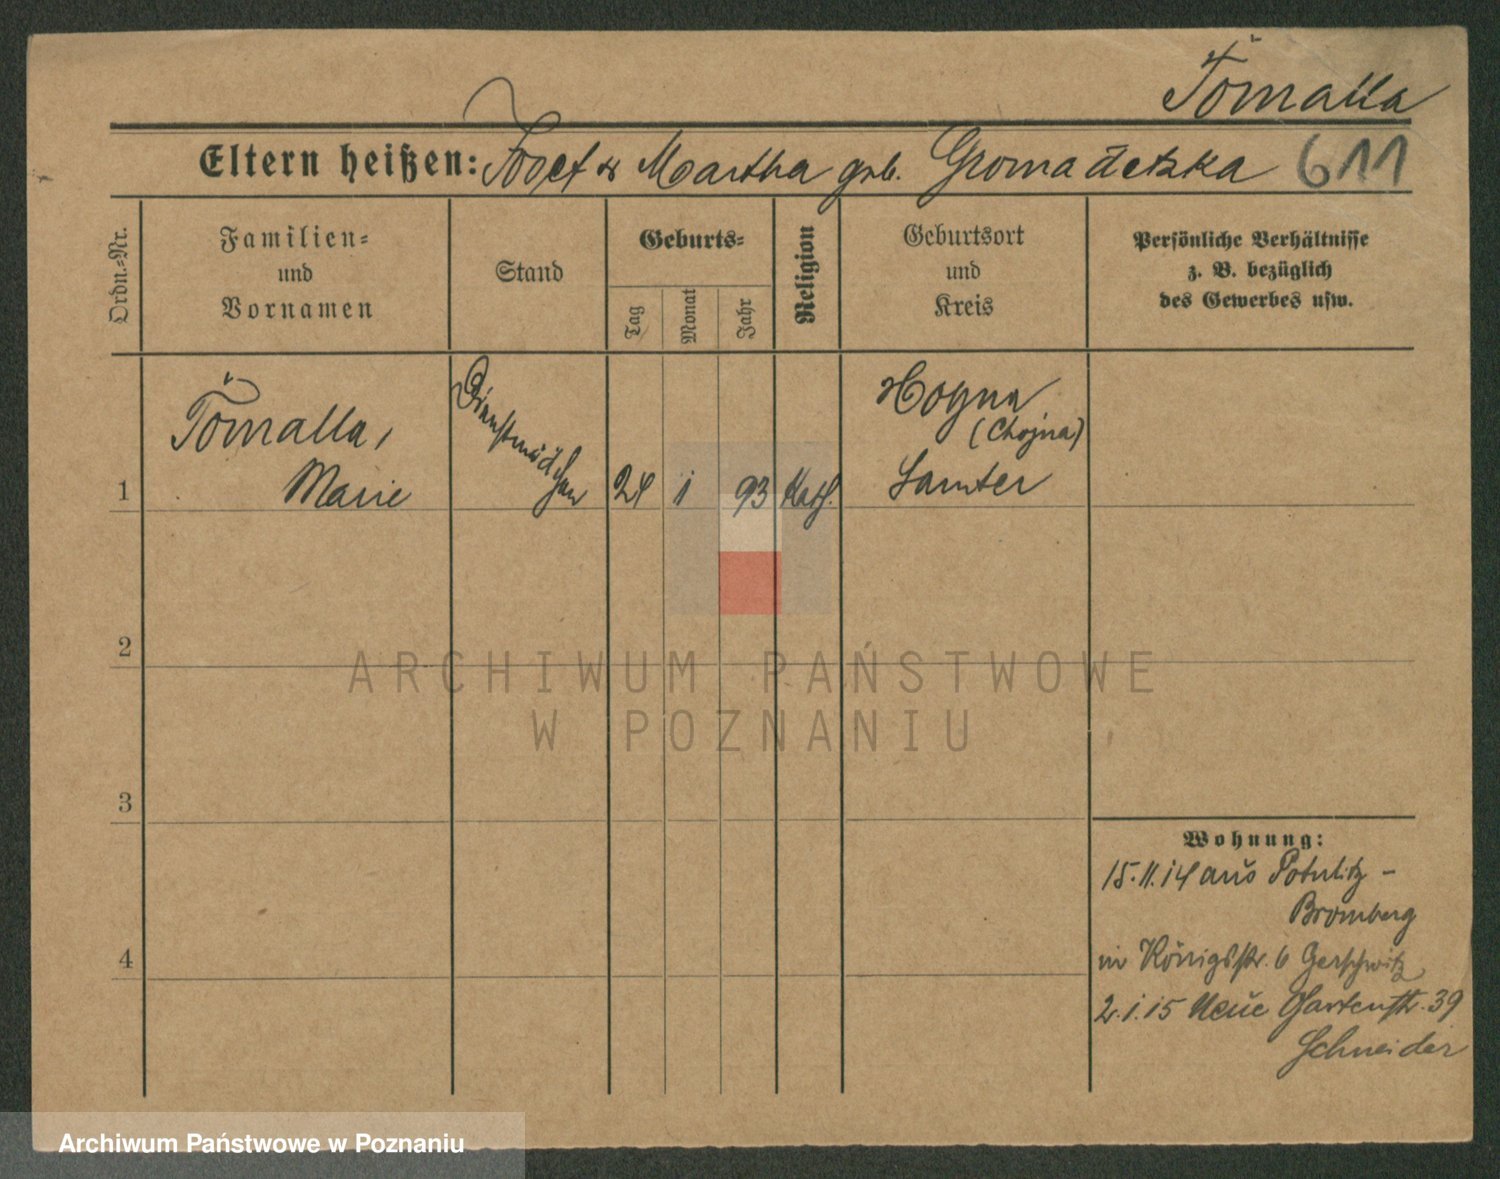 Tomalla
Eltern heißen: Josef & Martha geb. Gromadetzka 611
Ordn.-Nr.
Familien-
und
Vornamen
Stand
Geburts-
Tag
Monat
Jahr
Religion
Geburtsort
und
Kreis
Persönliche Verhältnisse
z. B. bezüglich
des Gewerbes usw.
1
Tomalla,
Marie
Dienstmädchen
24 1 93 Kath.
Hoyna
(Chojna)
Samter
2
ARCHIWUM PAŃSTWOWE
W POZNANIU
3
4
Wohnung:
15.11.14 aus Potulitz -
Bromberg
in Königsstr. 6 Gerschwitz
2.1.15 Neue Gartenstr. 39
Schneider
Archiwum Państwowe w Poznaniu